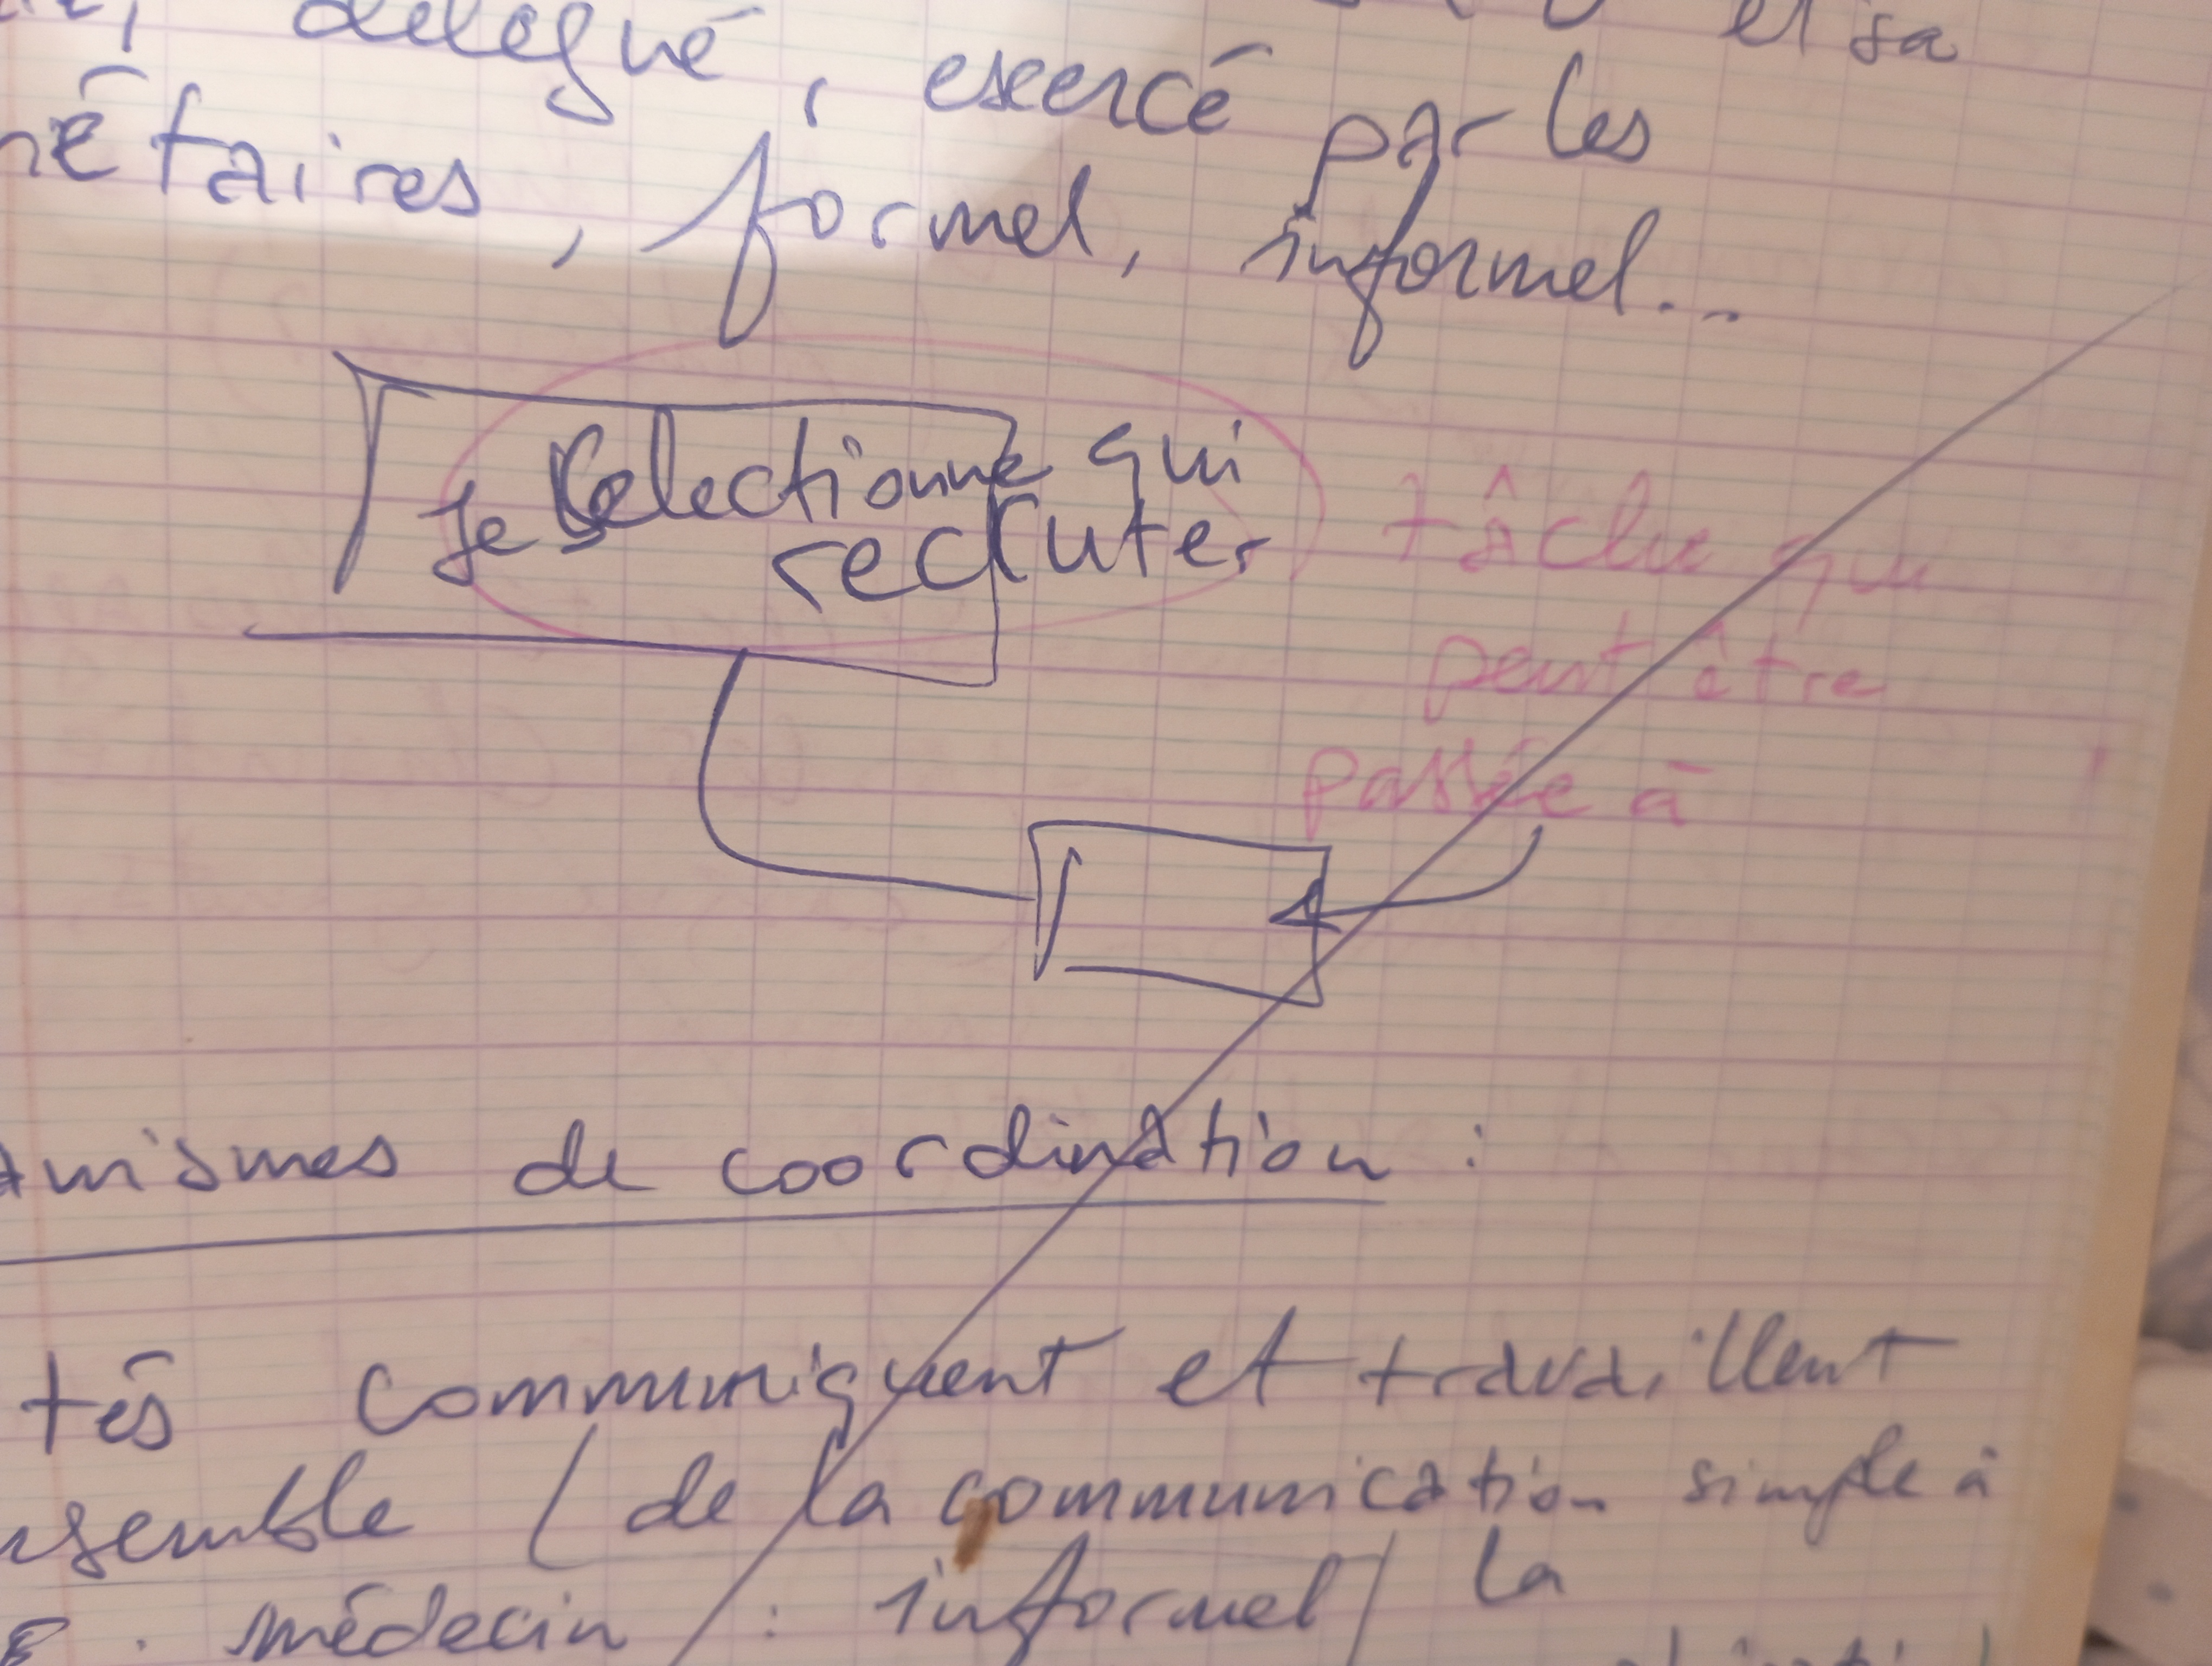 délégué, esercé par les
nétaires, formel, informel...
Je sélectionne qui
recruter
tâche qu
peut être
passée à
anismes de coordination :
tés communiquent et travaillent
nsemble (de la communication simple à
médecin : informel) la